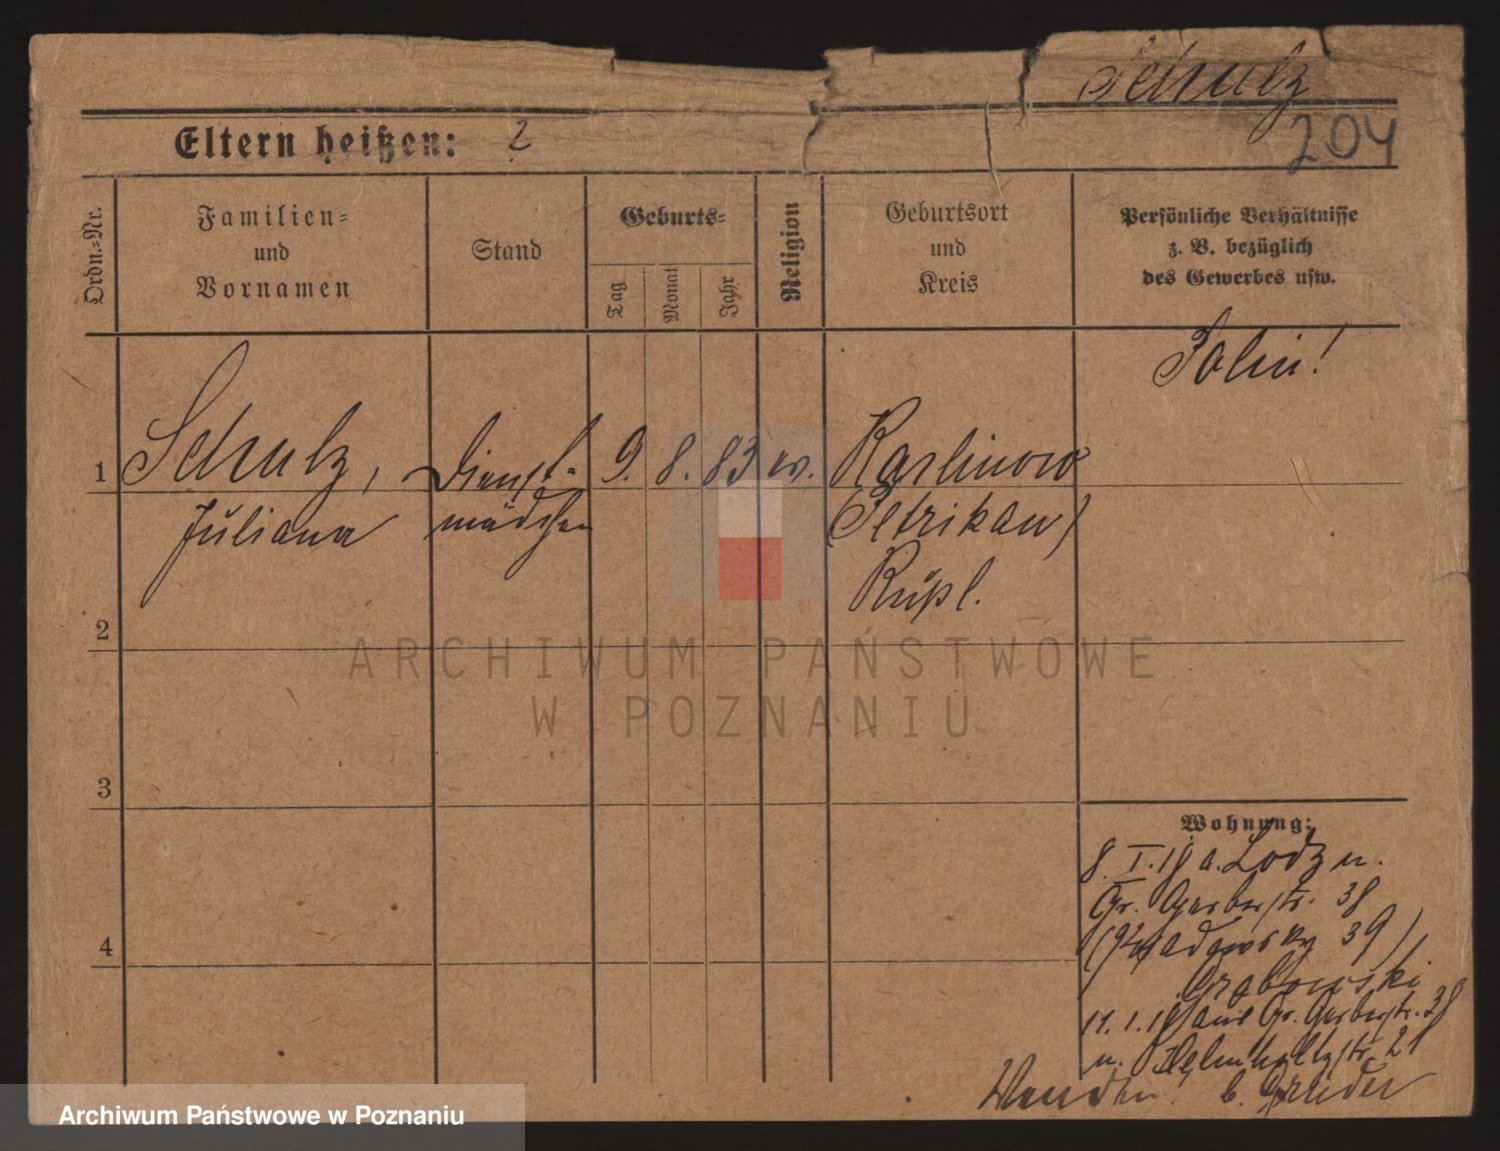 Schulz
Eltern heißen: 2
204
Ordn.=Nr.
Familien=
und
Vornamen
Stand
Geburts=
Tag
Monat
Jahr
Religion
Geburtsort
und
Kreis
Persönliche Verhältnisse
z. B. bezüglich
des Gewerbes usw.
Polin!
1 Schulz, Dienst- 9. 8. 83 ev. Karlinow
Juliana mädchen (Petrikau)
Rußl.
2
3
4
Wohnung:
8. I. 18 a. Lodz n.
Gr. Gerberstr. 38
39)
Grabowski
11. 1. 18 aus Gr. Gerberstr. 38
n. Helmholtzstr. 21
Wenden! b. Grüder
ARCHIWUM PAŃSTWOWE
W POZNANIU
Archiwum Państwowe w Poznaniu